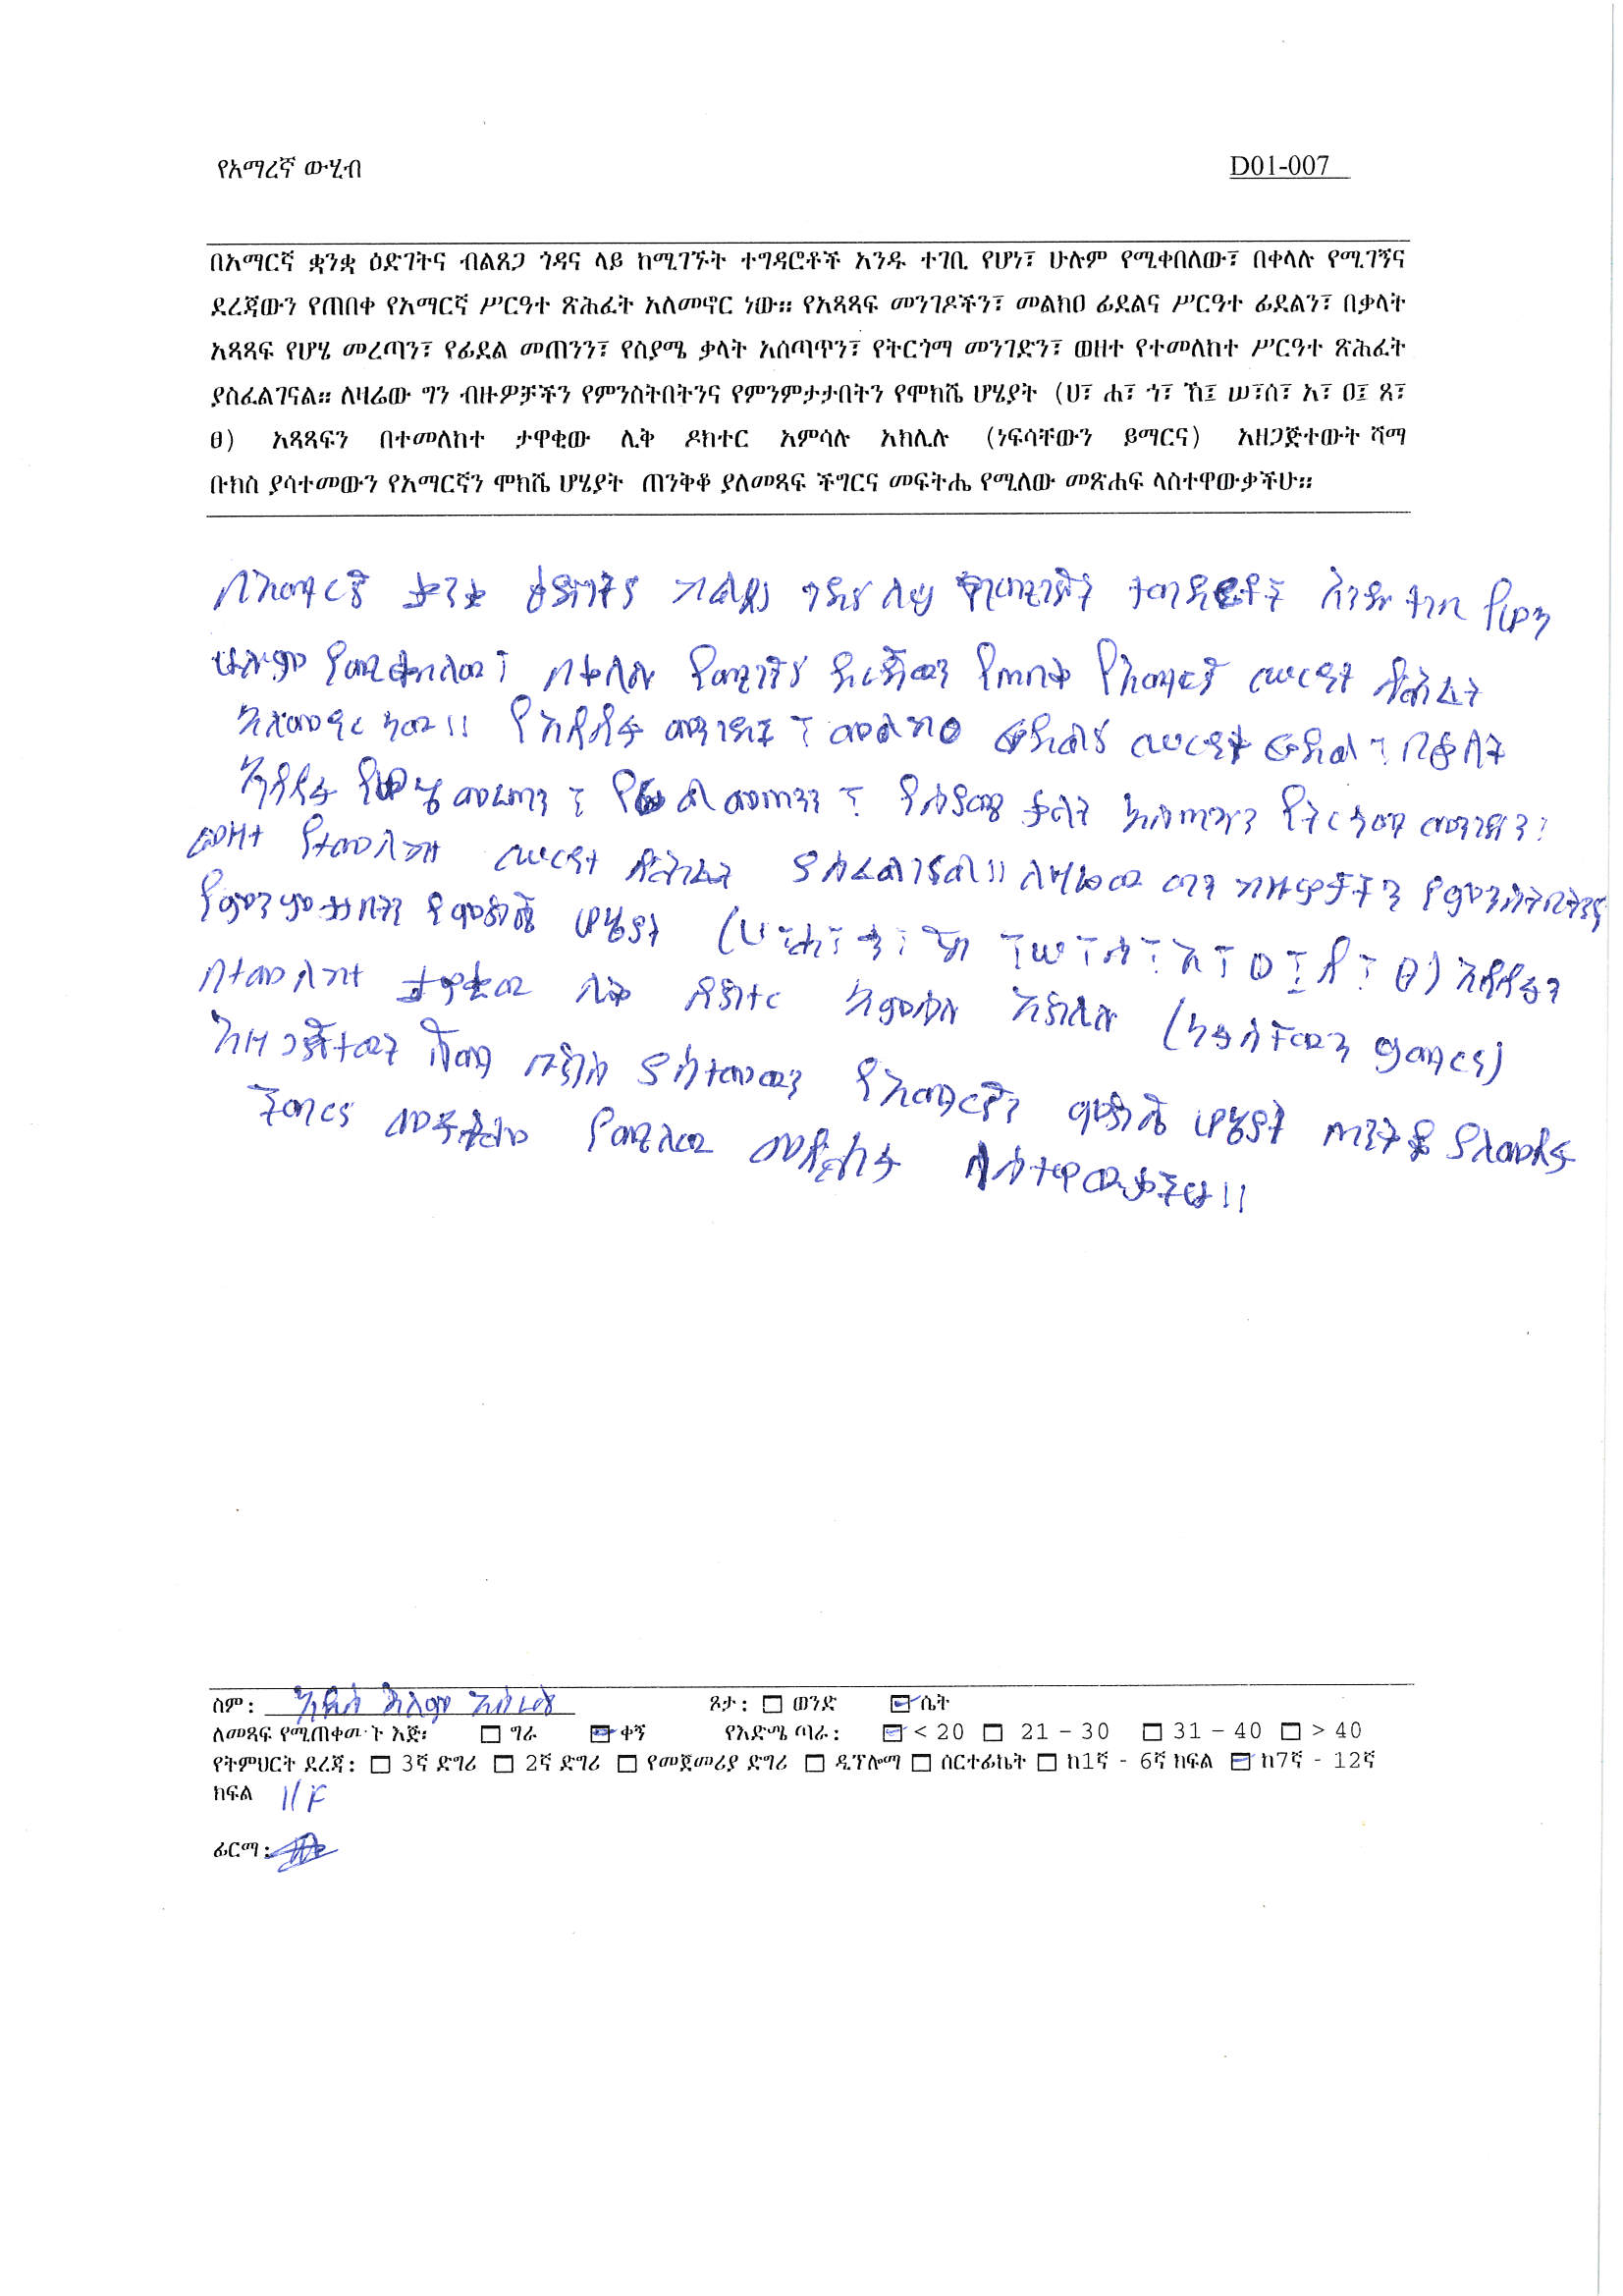 የአማረኛ ውሂብ D01-007
በአማርኛ ቋንቋ ዕድገትና ብልጸጋ ጎዳና ላይ ከሚገኙት ተግዳሮቶች አንዱ ተገቢ የሆነ፣ ሁሉም የሚቀበለው፣ በቀላሉ የሚገኝና
ደረጃውን የጠበቀ የአማርኛ ሥርዓተ ጽሕፈት አለመኖር ነው። የአጻጻፍ መንገዶችን፣ መልክዐ ፊደልና ሥርዓተ ፊደልን፣ በቃላት
አጻጻፍ የሆሄ መረጣን፣ የፊደል መጠንን፣ የስያሜ ቃላት አሰጣጥን፣ የትርጎማ መንገድን፣ ወዘተ የተመለከተ ሥርዓተ ጽሕፈት
ያስፈልገናል። ለዛሬው ግን ብዙዎቻችን የምንስትበትንና የምንምታታበትን የሞክሼ ሆሄያት (ሀ፣ ሐ፣ ኀ፣ ኸ፤ ሠ፣ሰ፣ አ፣ ዐ፤ ጸ፣
ፀ) አጻጻፍን በተመለከተ ታዋቂው ሊቅ ዶክተር አምሳሉ አክሊሉ (ነፍሳቸውን ይማርና) አዘጋጅተውት ሻማ
ቡክስ ያሳተመውን የአማርኛን ሞክሼ ሆሄያት ጠንቅቆ ያለመጻፍ ችግርና መፍትሔ የሚለው መጽሐፍ ላስተዋውቃችሁ።
በአማርኛ ቋንቋ ዕድገትና ብልጸጋ ጎዳና ላይ ከሚገኙት ተግዳሮቶች አንዱ ተገቢ የሆነ
ሁሉም የሚቀበለው፣ በቀላሉ የሚገኝና ደረጃውን የጠበቀ የአማርኛ ሥርዓተ ጽሕፈት
አለመኖር ነው። የአጻጻፍ መንገዶች፣ መልክዐ ፊደልና ሥርዓተ ፊደል፣ በቃላት
አጻጻፍ የሆሄ መረጣን፣ የፊደል መጠንን፣ የስያሜ ቃላት አሰጣጥን የትርጎማ መንገድን፣
ወዘተ የተመለከተ ሥርዓተ ጽሕፈት ያስፈልገናል። ለዛሬው ግን ብዙዎቻችን የምንስትበትንና
የምንምታታበትን የሞክሼ ሆሄያት (ሀ፣ሐ፣ ኀ፣ ኸ፣ሠ፣ሰ፣አ፣ዐ፤ጸ፣ፀ) አጻጻፍን
በተመለከተ ታዋቂው ሊቅ ዶክተር አምሳሉ አክሊሉ (ነፍሳቸውን ይማርና)
አዘጋጅተውት ሻማ ቡክስ ያሳተመውን የአማርኛን ሞክሼ ሆሄያት ጠንቅቆ ያለመጻፍ
ችግርና መፍትሔው የሚለው መጽሐፍ ላስተዋውቃችሁ።
ስም: አዲስ አለም አሰፋ ጾታ: ወንድ ሴት
ለመጻፍ የሚጠቀሙት እጅ፡ ግራ ቀኝ የእድሜ ጣራ: < 20 21 – 30 31 – 40 > 40
የትምህርት ደረጃ: 3ኛ ድግሪ 2ኛ ድግሪ የመጀመሪያ ድግሪ ዲፕሎማ ሰርተፊኬት ከ1ኛ - 6ኛ ክፍል ከ7ኛ - 12ኛ
ክፍል 11 F
ፊርማ: